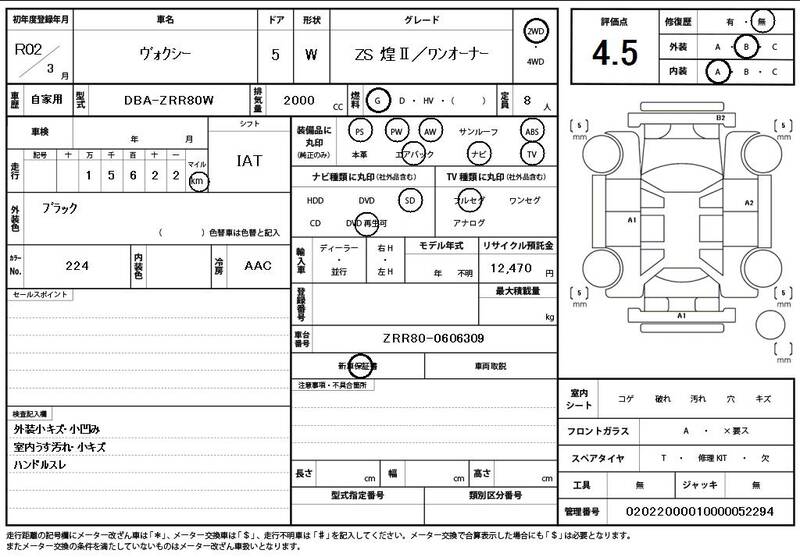 初年度登録年月 車名 ドア 形状 グレード
R02 / 3 月 ヴォクシー 5 W ZS 煌Ⅱ/ワンオーナー 2WD ・ 4WD
車歴 自家用 型式 DBA-ZRR80W 排気量 2000 CC 燃料 G ・ D ・ HV ・ ( ) 定員 8 人
車検 年 月 シフト IAT
走行 記号 十 万 千 百 十 一 マイル km
1 5 6 2 2
外装色 ブラック
( ) 色替車は色替と記入
カラーNo. 224 内装色 冷房 AAC
セールスポイント
検査記入欄
外装小キズ・小凹み
室内うす汚れ・小キズ
ハンドルスレ
装備品に丸印 (純正のみ) PS PW AW サンルーフ ABS
本革 エアバック ナビ TV
ナビ種類に丸印 (社外品含む) TV種類に丸印 (社外品含む)
HDD DVD SD フルセグ ワンセグ
CD DVD再生可 アナログ
輸入車 ディーラー ・ 並行 右H ・ 左H モデル年式 年 不明 リサイクル預託金 12,470 円
登録番号 最大積載量 kg
車台番号 ZRR80-0606309
新車保証書 車両取説
注意事項・不具合箇所
長さ cm 幅 cm 高さ cm
型式指定番号 類別区分番号
評価点 4.5
修復歴 有 ・ 無
外装 A ・ B ・ C
内装 A ・ B ・ C
B2
5 mm
5 mm
A1
A2
5 mm
5 mm
A1
mm
室内シート コゲ 破れ 汚れ 穴 キズ
フロントガラス A ・ ×要ス
スペアタイヤ T ・ 修理KIT ・ 欠
工具 無 ジャッキ 無
管理番号 02022000010000052294
走行距離の記号欄にメーター改ざん車は「*」、メーター交換車は「$」、走行不明車は「#」を記入してください。メーター交換で合算表示した場合にも「$」は必要となります。
またメーター交換の条件を満たしていないものはメーター改ざん車扱いとなります。